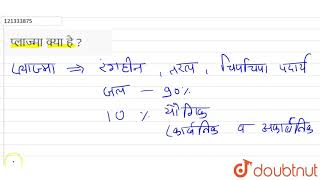 121333875
प्लाज्मा क्या है ?
प्लाज्मा ⇒ रंगहीन , तरल , चिपचिपा पदार्थ
जल — 90%
10 % यौगिक
(कार्बनिक व अकार्बनिक
doubtnut